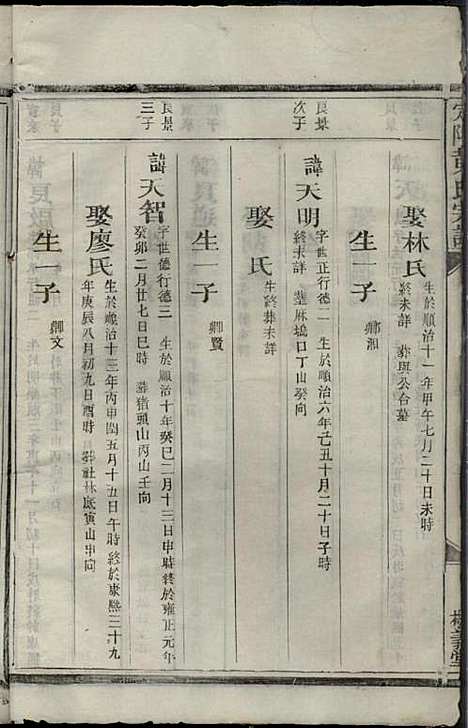 娶林氏
生於順治十一年甲午七月二十日未時
終未詳 葬與公合墓
生一子 卿湘
良景
次子
諱天明
字世正行德二 生於順治六年己丑十月二十日子時
終未詳 葬麻塢口丁山癸向
娶 氏
生終葬未詳
生一子 卿賢
良景
三子
諱天智
字世德行德三 生於順治十年癸巳二月十三日申時終於雍正元年
癸卯二月廿七日巳時 葬猪頭山丙山壬向
娶廖氏
生於順治十三年丙申閏五月十五日午時終於康熙三十九
年庚辰八月初九日酉時 葬社林底寅山申向
生一子 卿文